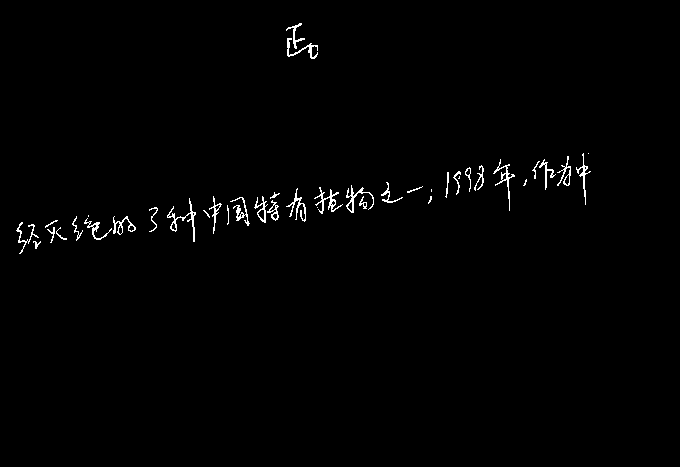 正。
经灭绝的3种中国特有植物之一；1998年，作为中